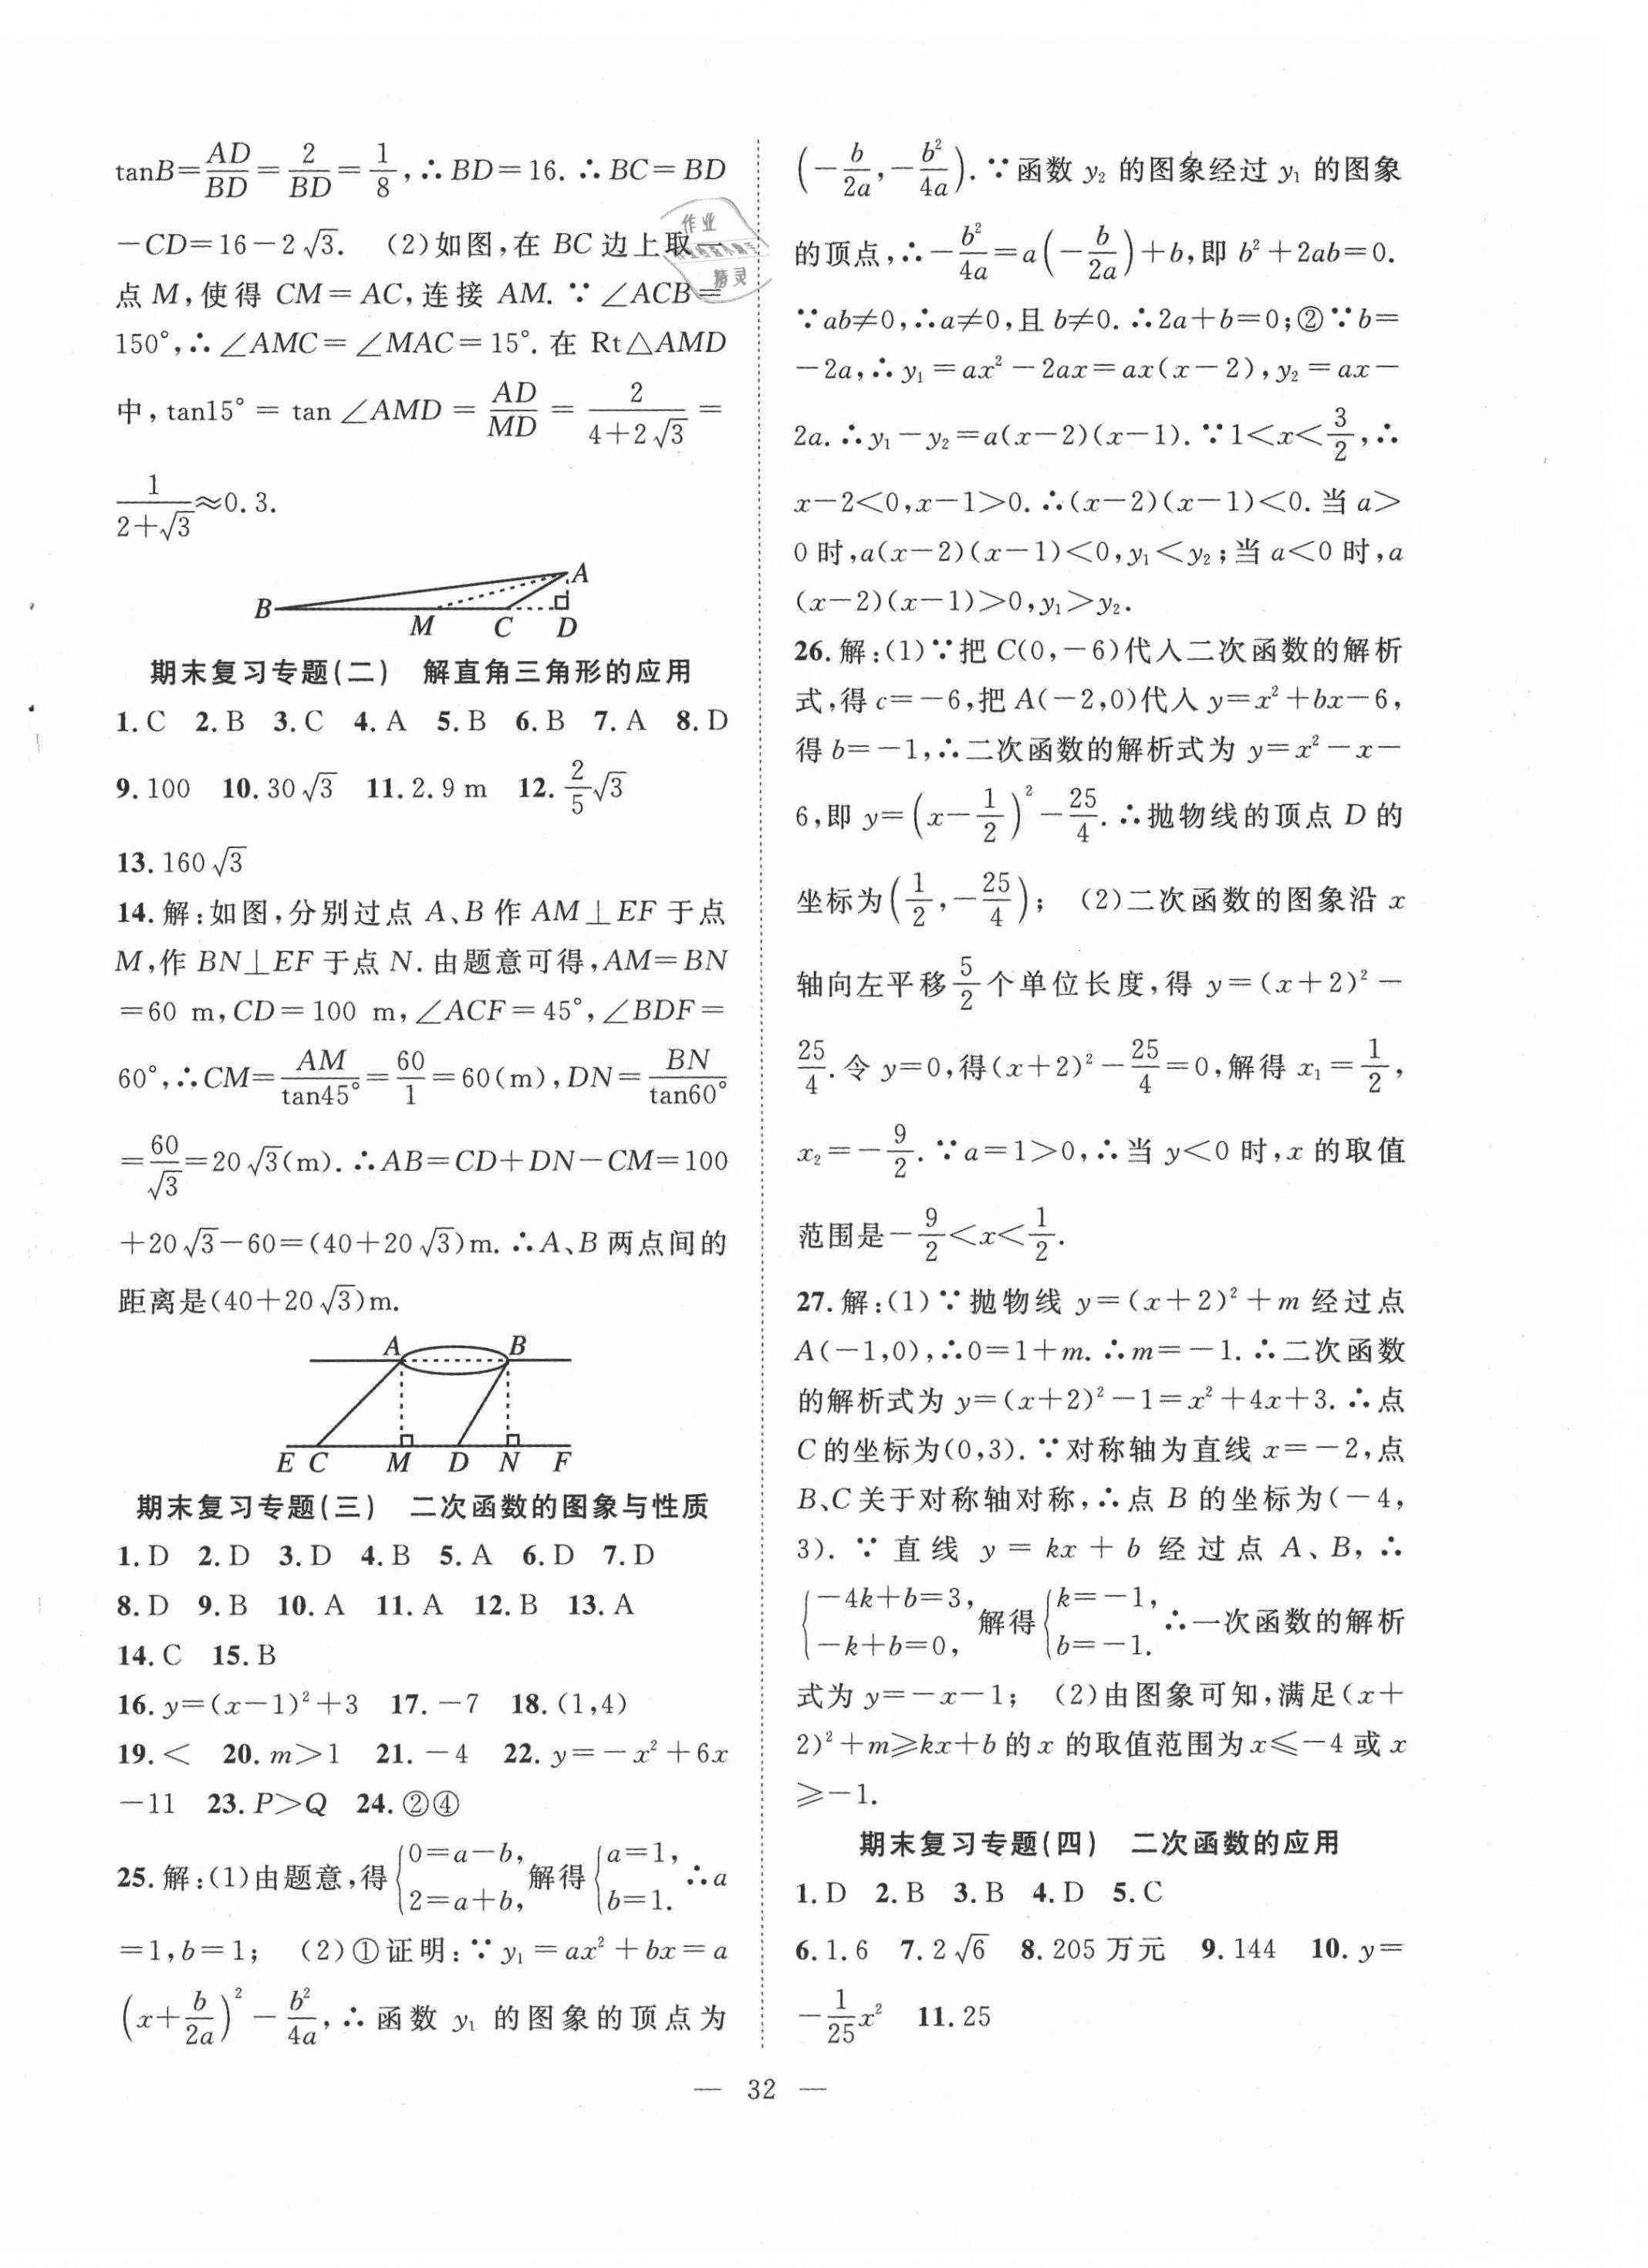 tanB=AD/BD=2/BD=1/8,∴BD=16.∴BC=BD
-CD=16-2√3. (2)如图,在 BC 边上取一
点 M,使得 CM=AC,连接 AM.∵∠ACB=
150°,∴∠AMC=∠MAC=15°.在 Rt△AMD
中,tan15°=tan∠AMD=AD/MD=2/(4+2√3)=
1/(2+√3)≈0.3.
A
B
M C D
期末复习专题(二) 解直角三角形的应用
1.C 2.B 3.C 4.A 5.B 6.B 7.A 8.D
9.100 10.30√3 11.2.9 m 12.2/5√3
13.160√3
14.解:如图,分别过点 A、B 作 AM⊥EF 于点
M,作 BN⊥EF 于点 N.由题意可得,AM=BN
=60 m,CD=100 m,∠ACF=45°,∠BDF=
60°,∴CM=AM/tan45°=60/1=60(m),DN=BN/tan60°
=60/√3=20√3(m).∴AB=CD+DN-CM=100
+20√3-60=(40+20√3)m.∴A、B 两点间的
距离是(40+20√3)m.
A B
E C M D N F
期末复习专题(三) 二次函数的图象与性质
1.D 2.D 3.D 4.B 5.A 6.D 7.D
8.D 9.B 10.A 11.A 12.B 13.A
14.C 15.B
16.y=(x-1)²+3 17.-7 18.(1,4)
19.< 20.m>1 21.-4 22.y=-x²+6x
-11 23.P>Q 24.②④
25.解:(1)由题意,得{0=a-b,2=a+b,解得{a=1,b=1.∴a
=1,b=1; (2)①证明:∵y₁=ax²+bx=a
(x+b/2a)²-b²/4a,∴函数 y₁ 的图象的顶点为
(-b/2a,-b²/4a).∵函数 y₂ 的图象经过 y₁ 的图象
的顶点,∴-b²/4a=a(-b/2a)+b,即 b²+2ab=0.
∵ab≠0,∴a≠0,且 b≠0.∴2a+b=0;②∵b=
-2a,∴y₁=ax²-2ax=ax(x-2),y₂=ax-
2a.∴y₁-y₂=a(x-2)(x-1).∵1<x<3/2,∴
x-2<0,x-1>0.∴(x-2)(x-1)<0.当 a>
0 时,a(x-2)(x-1)<0,y₁<y₂;当 a<0 时,a
(x-2)(x-1)>0,y₁>y₂.
26.解:(1)∵把 C(0,-6)代入二次函数的解析
式,得 c=-6,把 A(-2,0)代入 y=x²+bx-6,
得 b=-1,∴二次函数的解析式为 y=x²-x-
6,即 y=(x-1/2)²-25/4.∴抛物线的顶点 D 的
坐标为(1/2,-25/4); (2)二次函数的图象沿 x
轴向左平移5/2个单位长度,得 y=(x+2)²-
25/4.令 y=0,得(x+2)²-25/4=0,解得 x₁=1/2,
x₂=-9/2.∵a=1>0,∴当 y<0 时,x 的取值
范围是-9/2<x<1/2.
27.解:(1)∵抛物线 y=(x+2)²+m 经过点
A(-1,0),∴0=1+m.∴m=-1.∴二次函数
的解析式为 y=(x+2)²-1=x²+4x+3.∴点
C 的坐标为(0,3).∵对称轴为直线 x=-2,点
B、C 关于对称轴对称,∴点 B 的坐标为(-4,
3).∵直线 y=kx+b 经过点 A、B,∴
{-4k+b=3,-k+b=0,解得{k=-1,b=-1.∴一次函数的解析
式为 y=-x-1; (2)由图象可知,满足(x+
2)²+m≥kx+b 的 x 的取值范围为 x≤-4 或 x
≥-1.
期末复习专题(四) 二次函数的应用
1.D 2.B 3.B 4.D 5.C
6.1.6 7.2√6 8.205 万元 9.144 10.y=
-1/25x² 11.25
— 32 —
作业
精灵